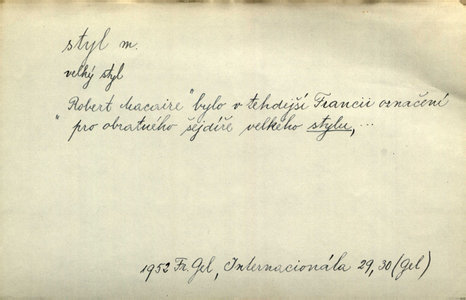 styl m.
velký styl
Robert Macaire" bylo v tehdejší Francii označení
" pro obratného šejdíře velkého stylu, ...
1952 Fr. Gel, Internacionála 29, 30 (Gel)